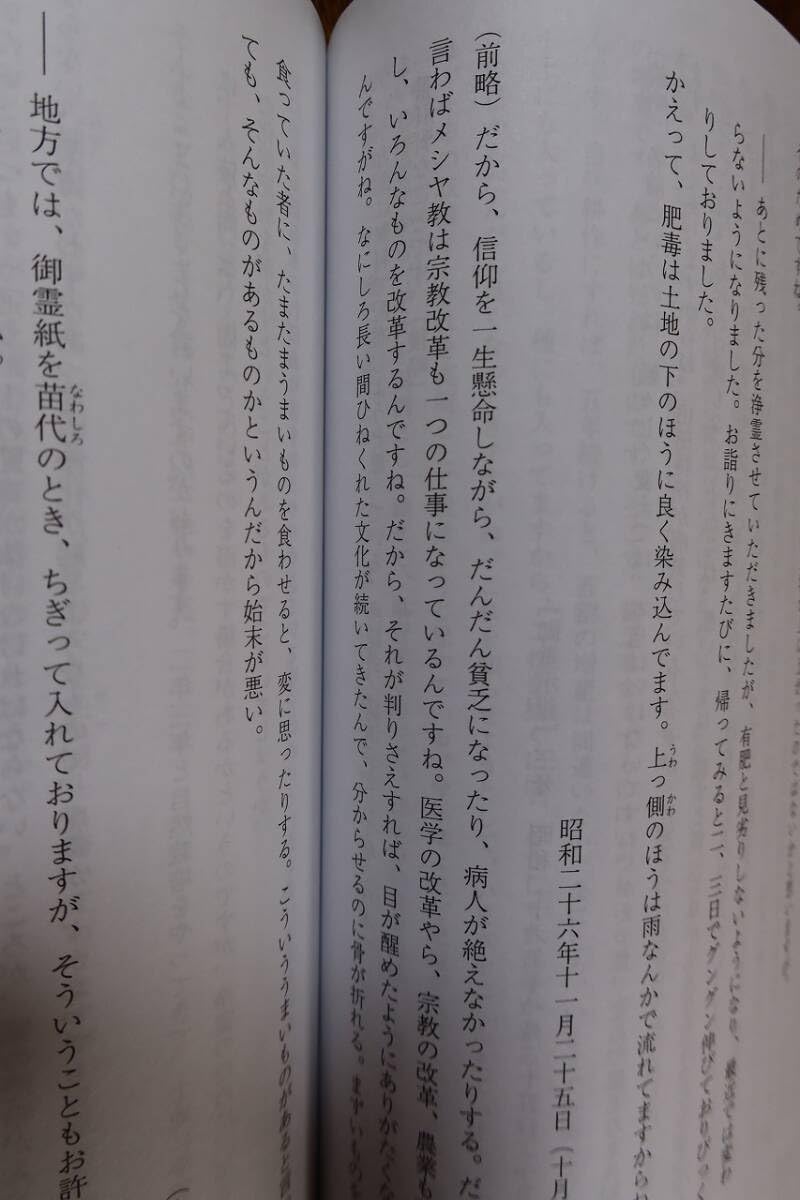 ――あとに残った分を浄霊させていただきましたが、有肥と見劣りしないようになり、
らないようになりました。お詣りにきますたびに、帰ってみると二、三日でグングン伸びており
りしておりました。
かえって、肥毒は土地の下のほうに良く染み込んでます。上っ側のほうは雨なんかで流れてますから
うわ かわ
昭和二十六年十一月二十五日(十月
(前略)だから、信仰を一生懸命しながら、だんだん貧乏になったり、病人が絶えなかったりする。だ
言わばメシヤ教は宗教改革も一つの仕事になっているんですね。医学の改革やら、宗教の改革、農業も
し、いろんなものを改革するんですね。だから、それが判りさえすれば、目が醒めたようにありがたく
んですがね。なにしろ長い間ひねくれた文化が続いてきたんで、分からせるのに骨が折れる。まずいものを
食っていた者に、たまたまうまいものを食わせると、変に思ったりする。こういううまいものがあると
ても、そんなものがあるものかというんだから始末が悪い。
――地方では、御霊紙を苗代のとき、ちぎって入れておりますが、そういうこともお許
なわしろ